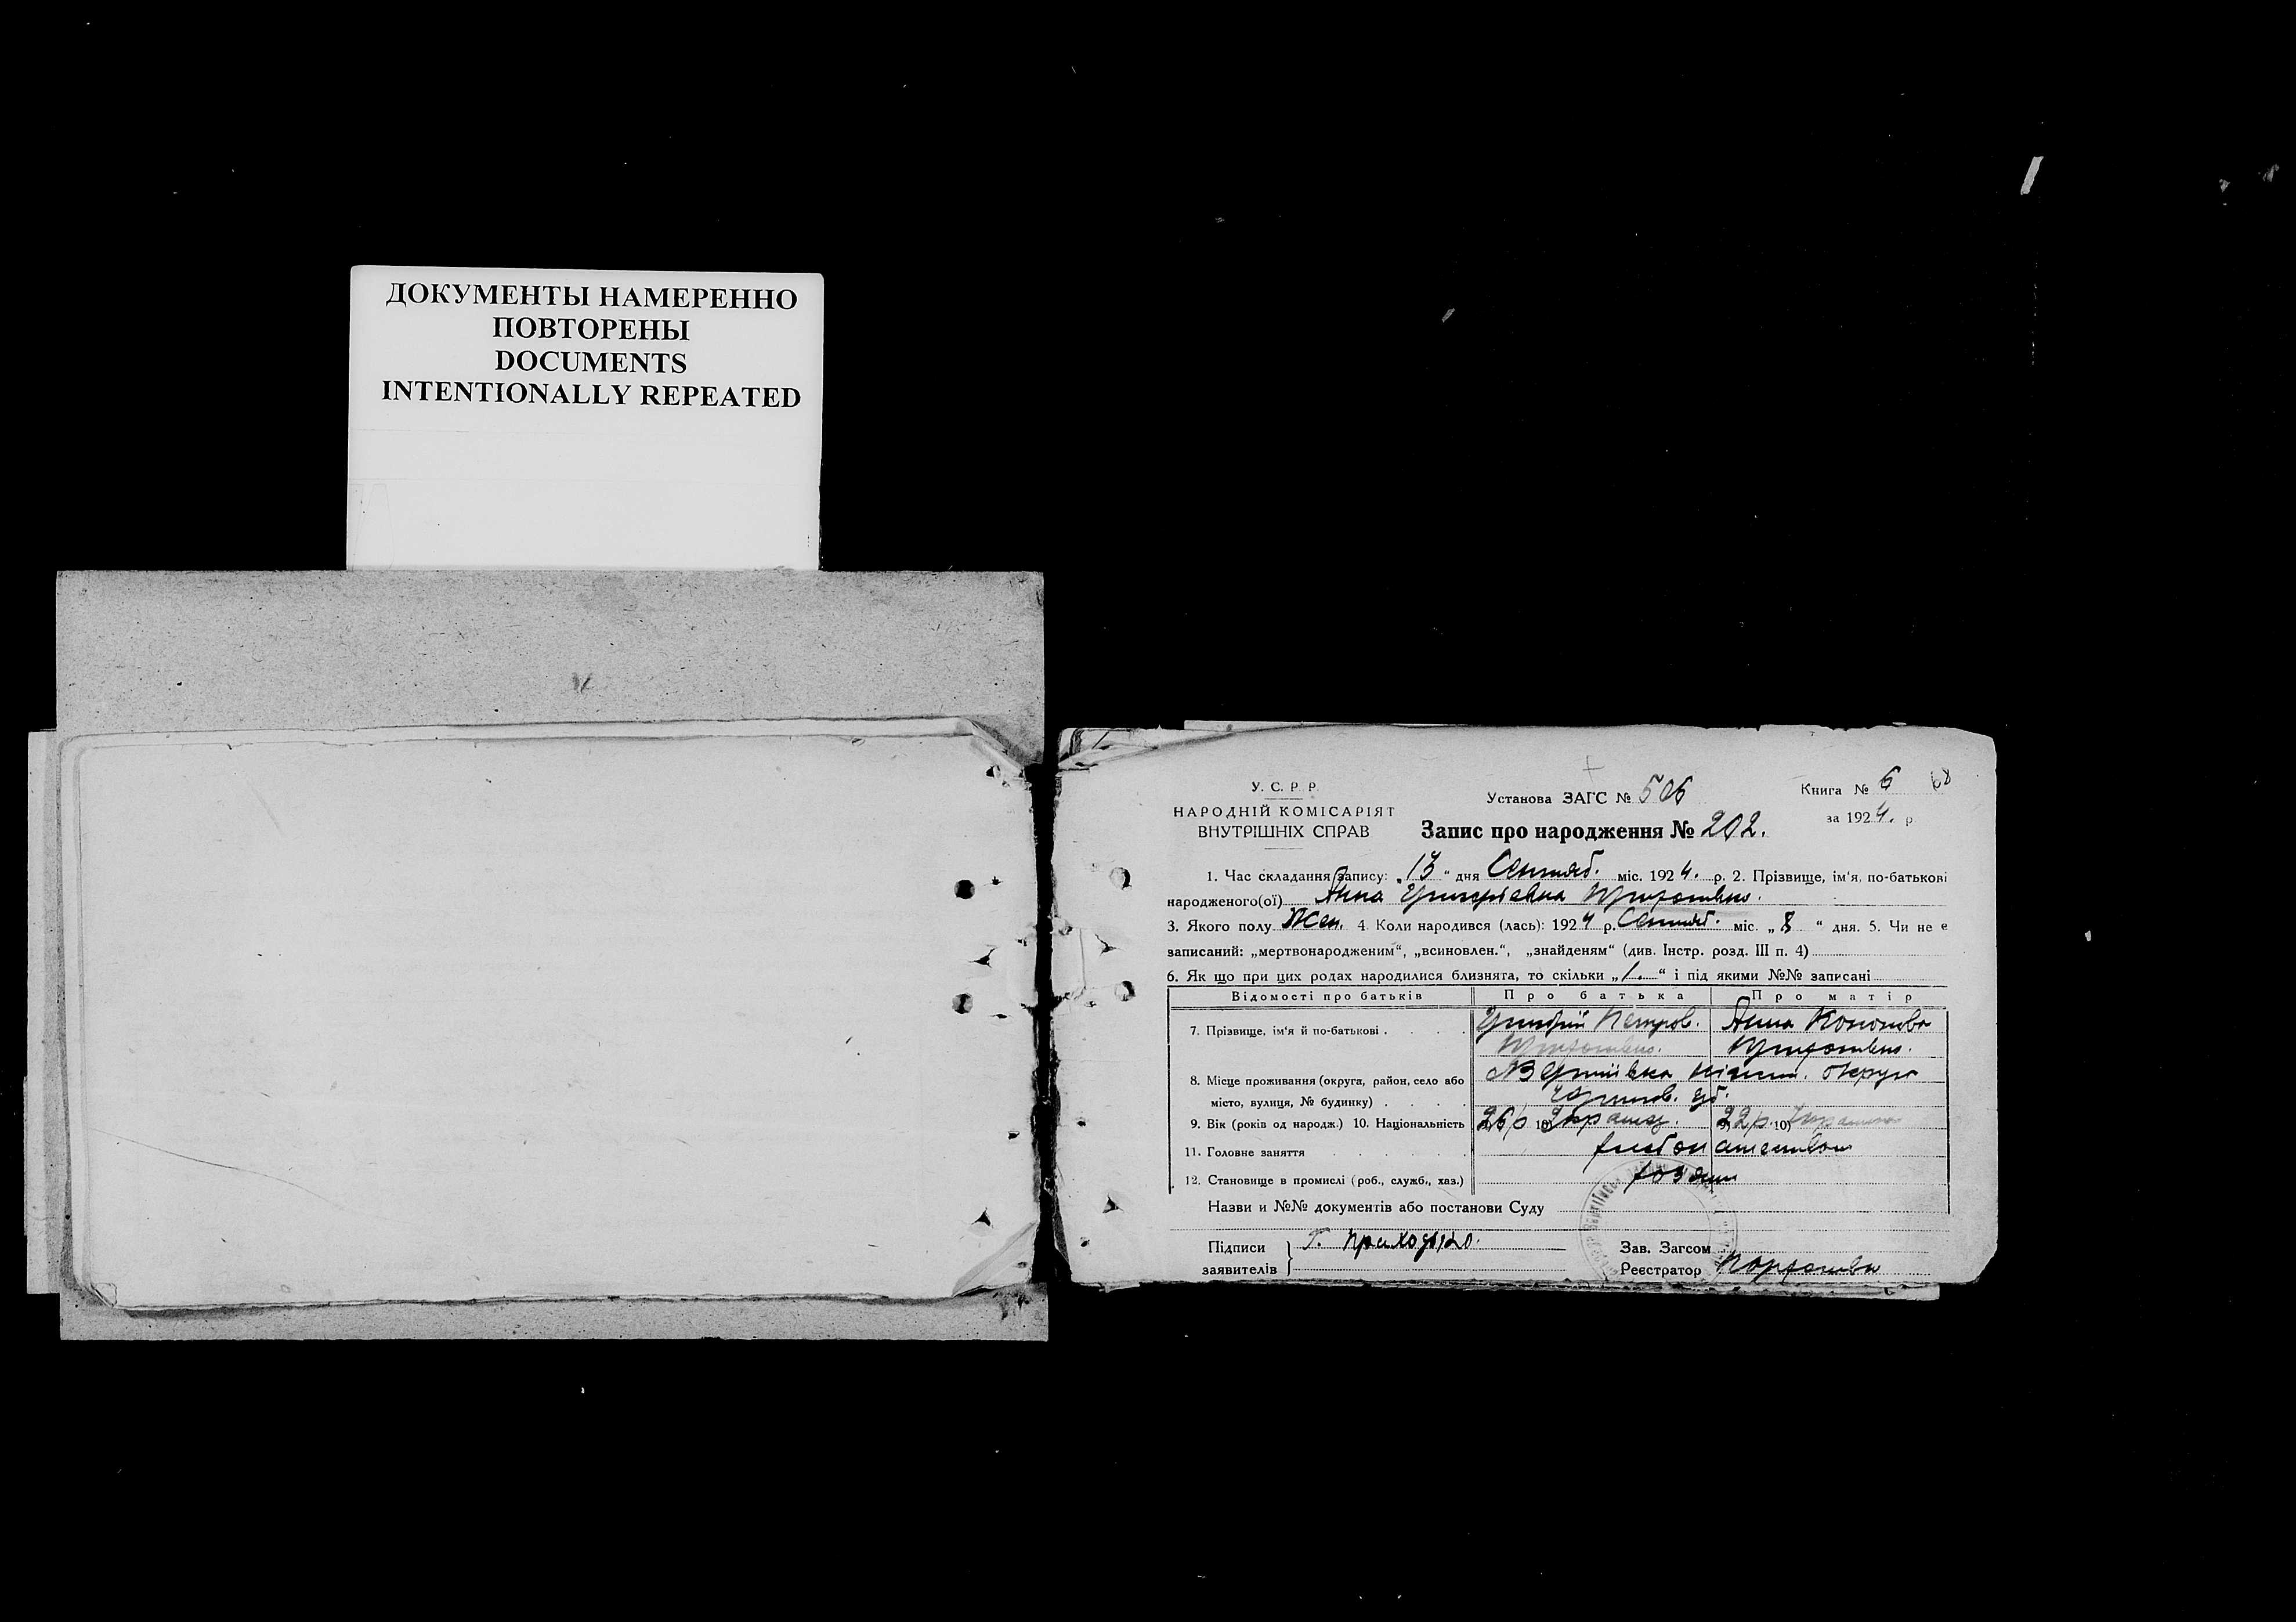 ДОКУМЕНТЫ НАМЕРЕННО
ПОВТОРЕНЫ
DOCUMENTS
INTENTIONALLY REPEATED
У. С. Р. Р.
НАРОДНІЙ КОМІСАРІЯТ
ВНУТРІШНІХ СПРАВ
Установа ЗАГС № 506
Книга № 6 68
за 1924. р.
Запис про народження № 202.
1. Час складання запису: „13“ дня Сентяб. міс. 1924. р. 2. Прізвище, ім'я, по-батькові
народженого(ої) Анна Григоріевна
3. Якого полу Жен. 4. Коли народився (лась): 1924 р. Сентяб. міс. „8“ дня. 5. Чи не є
записаний: „мертвонародженим“, „всиновлен.“, „знайденям“ (див. Інстр. розд. III п. 4)
6. Як що при цих родах народилися близнята, то скільки „1.“ і під якими №№ записані
Відомості про батьків Про батька Про матір
7. Прізвище, ім'я й по-батькові Григорій Петров. Анна Кононовa
8. Місце проживання (округа, район, село або Вертіївка Ніжин. округи
місто, вулиця, № будинку) Черниг. губ.
9. Вік (років од народж.) 10. Національність 26 р 10) Украинц. 22 р. 10)
11. Головне заняття хлебопашеством
12. Становище в промислі (роб., служб., хаз.) хозяин
Назви и №№ документів або постанови Суду
Підписи Г. Приходько.
заявителів
Зав. Загсом
Реєстратор